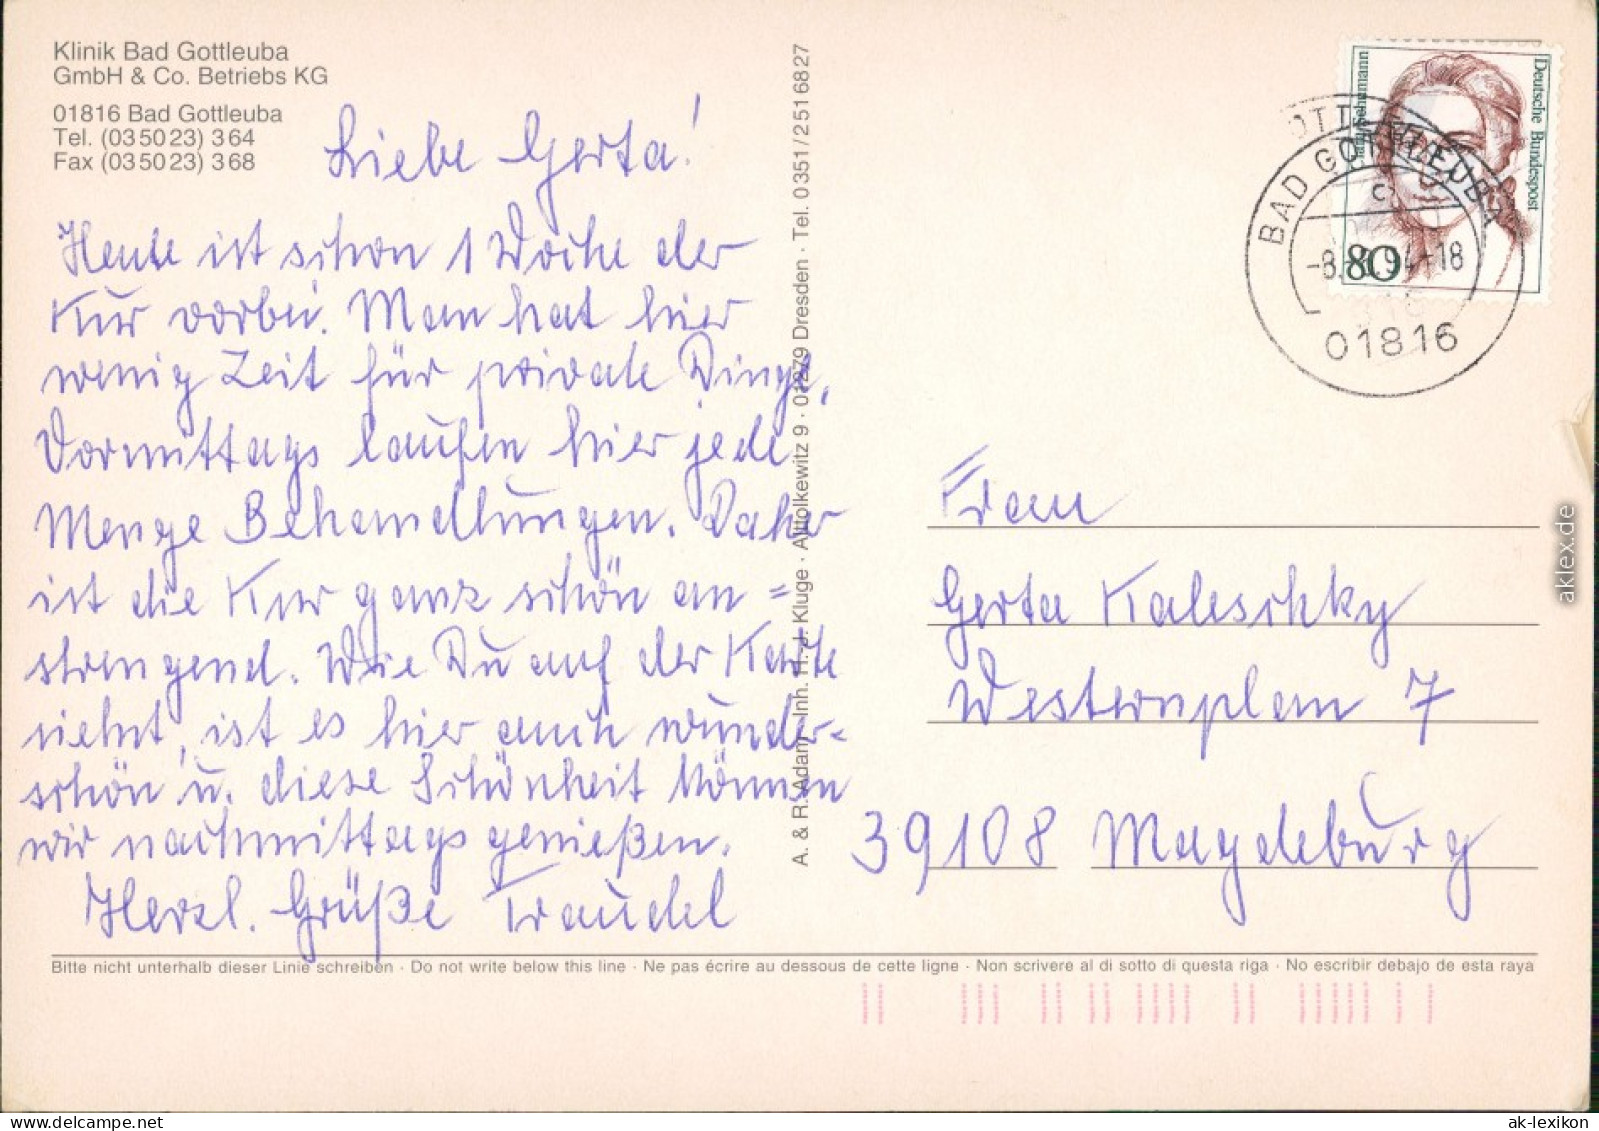 Klinik Bad Gottleuba
GmbH & Co. Betriebs KG
01816 Bad Gottleuba
Tel. (035023) 364
Fax (035023) 368
Liebe Gerta!
Heute ist schon 1 Woche der
Kur vorbei. Man hat hier
wenig Zeit für private Dinge,
Vormittags laufen hier jede
Menge Behandlungen. Daher
ist die Kur ganz schön an=
strengend. Wie Du auf der Karte
siehst, ist es hier auch wunder=
schön u. diese Schönheit können
wir nachmittags genießen.
Herzl. Grüße Traudel
A. & R. Adam, Inh. H. J. Kluge · Alttolkewitz 9 · 01279 Dresden · Tel. 0351/2516827
Deutsche Bundespost
80
BAD GOTTLEUBA
c
94-18
01816
Frau
Gerta Kaleschky
Westernplan 7
39108 Magdeburg
Bitte nicht unterhalb dieser Linie schreiben · Do not write below this line · Ne pas écrire au dessous de cette ligne · Non scrivere al di sotto di questa riga · No escribir debajo de esta raya
aklex.de
www.delcampe.net
ak-lexikon